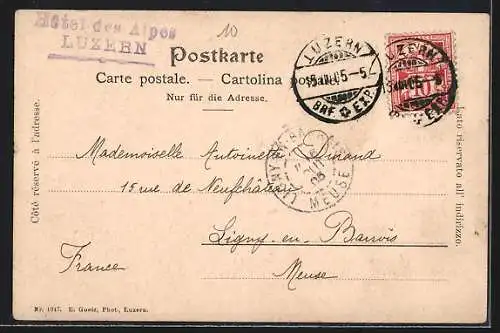 Hôtel des Alpes
LUZERN
10
Postkarte
Carte postale. — Cartolina postale.
Nur für die Adresse.
LUZERN
BRF. EXP.
LUZERN
Côté réservé à l'adresse.
Lato riservato all' indirizzo.
Mademoiselle Antoinette Dinand
15 rue de Neufchâteau
LIGNY-EN-BA
MEUSE
Ligny-en-Barrois
France
Meuse
Nr. 1047. E. Goetz, Phot., Luzern.